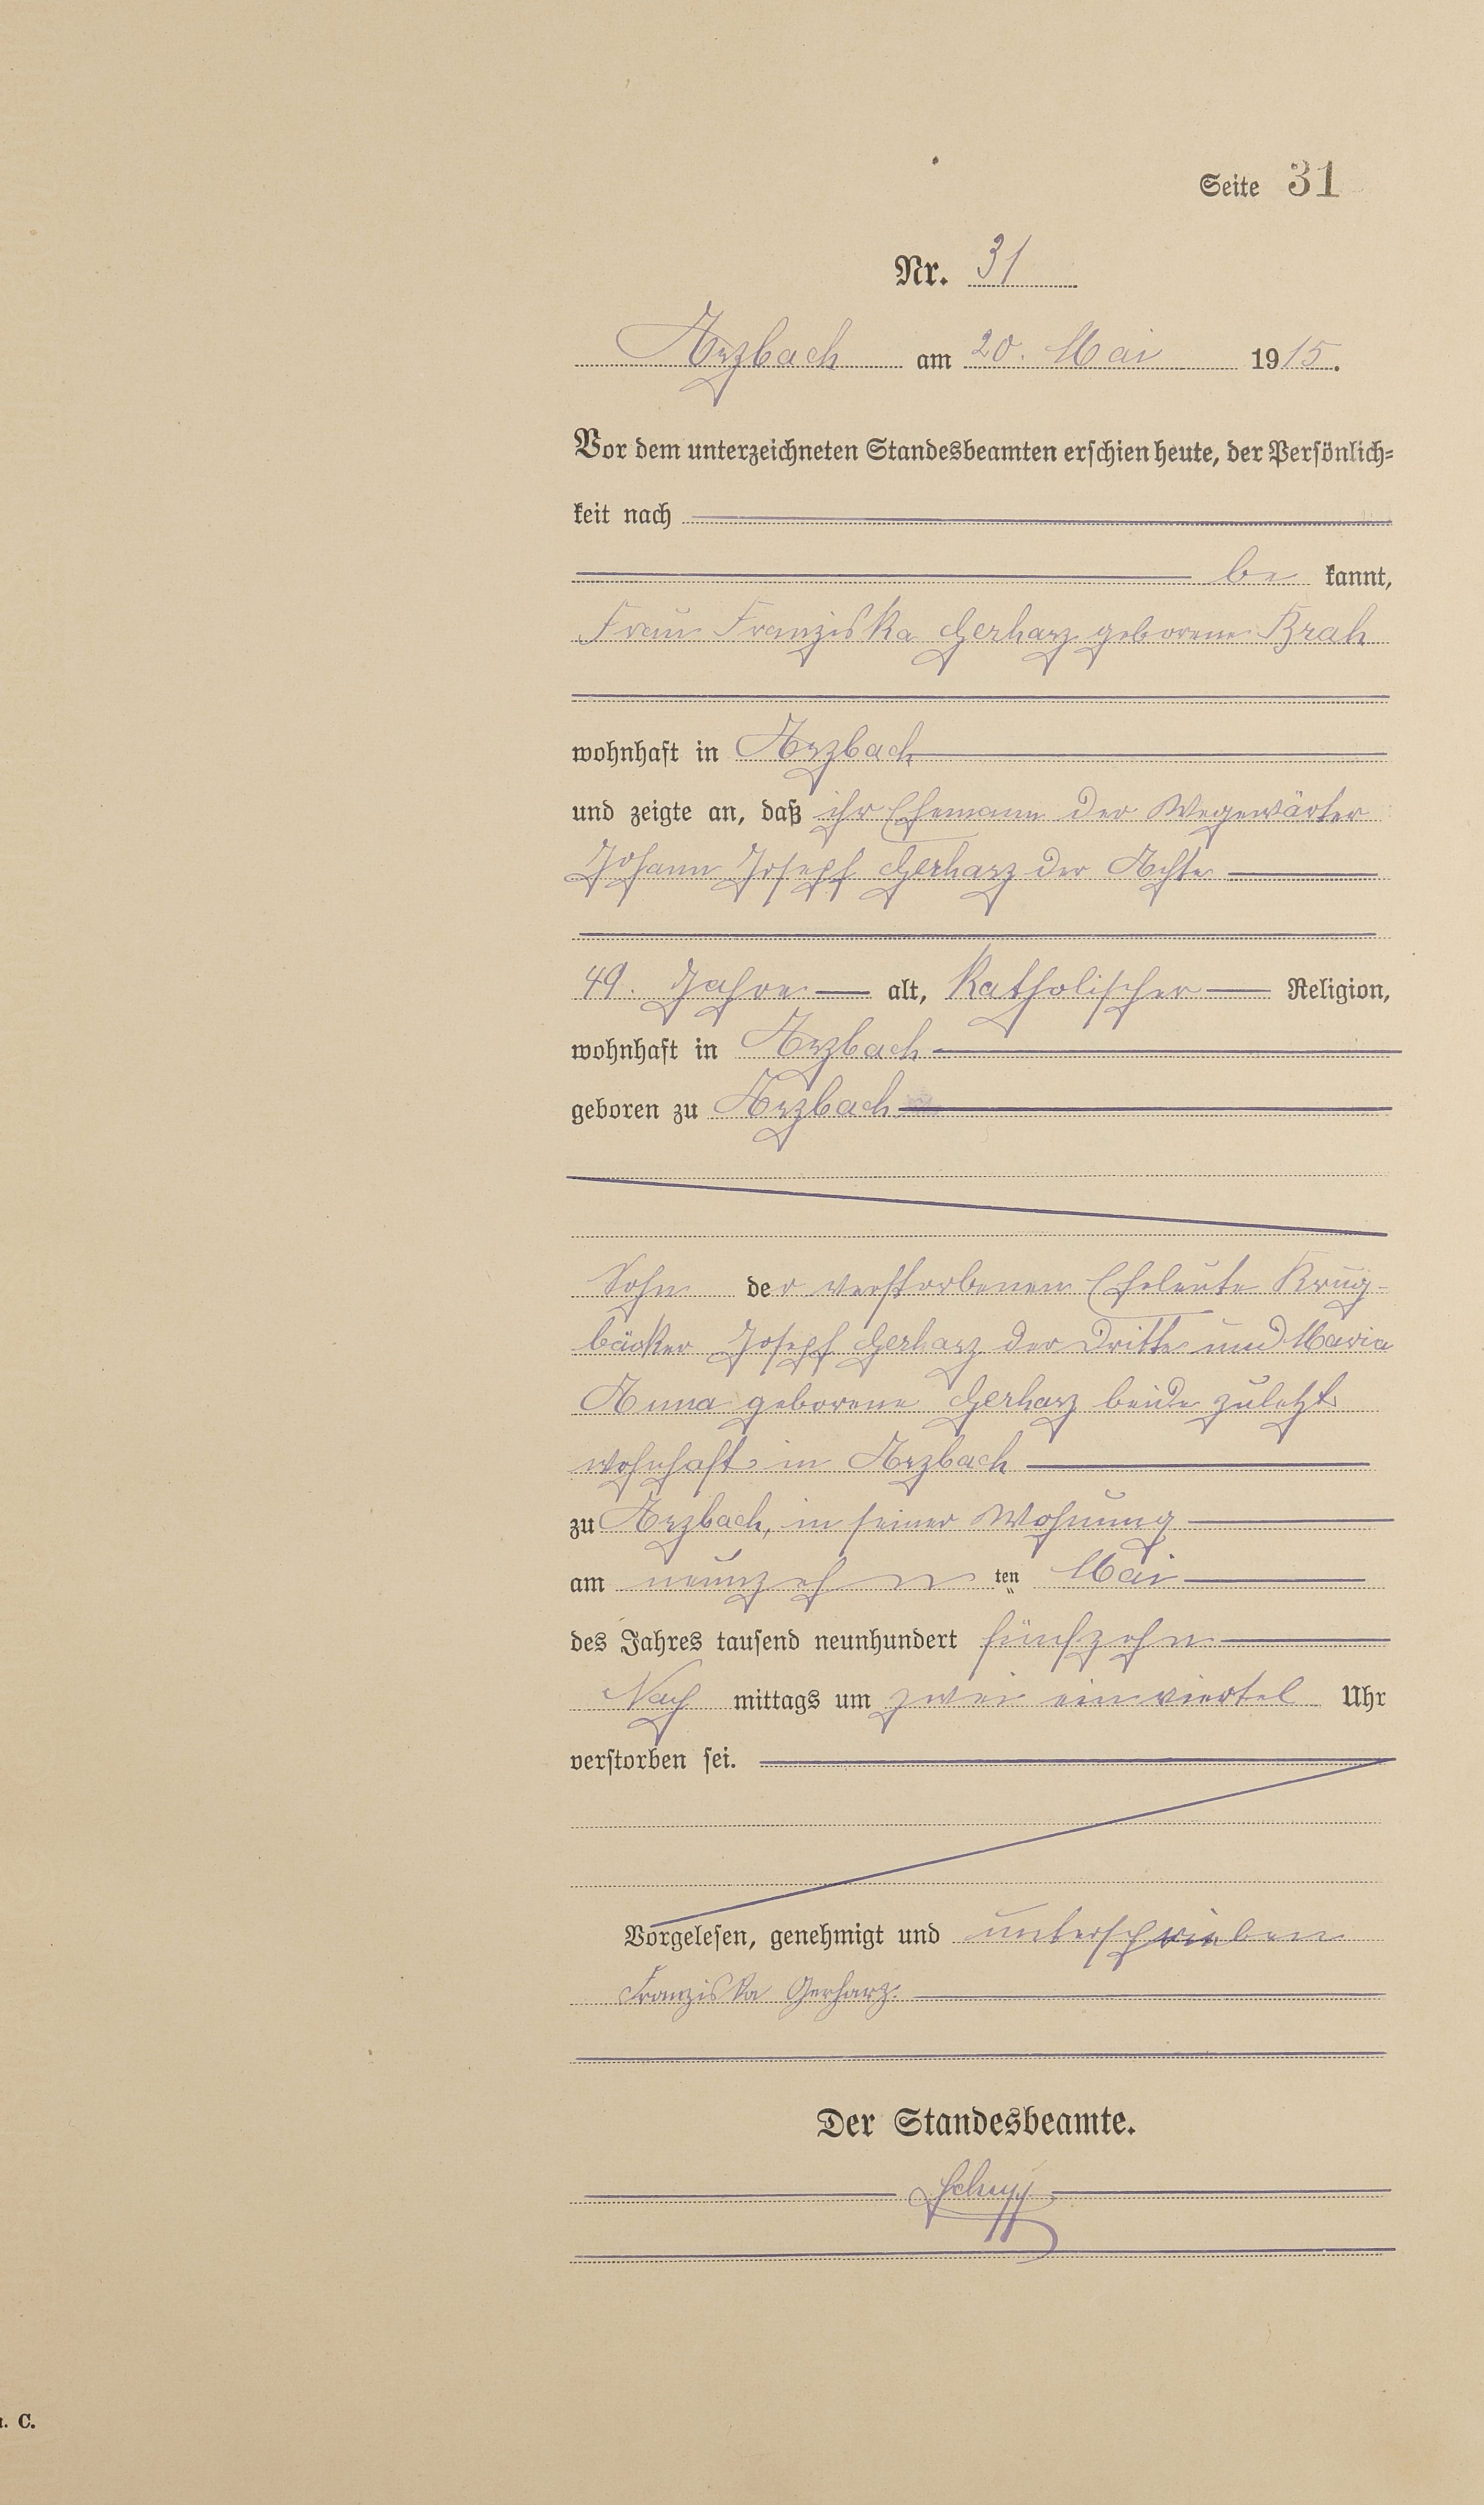 Seite 31
Nr. 31
Arzbach am 20. Mai 1915.
Vor dem unterzeichneten Standesbeamten erschien heute, der Persönlich-
keit nach
be kannt,
Frau Franziska Gerharz geborene Brah
wohnhaft in Arzbach
und zeigte an, daß ihr Ehemann der Wegewärter
Johann Joseph Gerharz der Achte
49. Jahre alt, Katholischer Religion,
wohnhaft in Arzbach
geboren zu Arzbach
Sohn der verstorbenen Eheleute Krug-
bäcker Joseph Gerharz der Dritte und Maria
Anna geborene Gerharz beide zuletzt
wohnhaft in Arzbach
zu Arzbach, in seiner Wohnung
am neunzehn ten Mai
des Jahres tausend neunhundert fünfzehn
Nach mittags um zwei einviertel Uhr
verstorben sei.
Vorgelesen, genehmigt und unterschrieben
Franziska Gerharz.
Der Standesbeamte.
Schupp
. C.